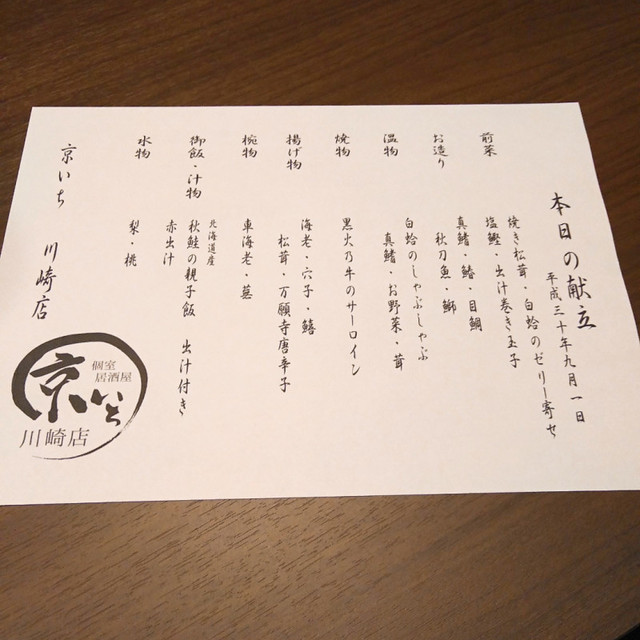 本日の献立
平成三十年九月一日
前菜
焼き松茸・白蛤のゼリー寄せ
塩鰹・出汁巻き玉子
お造り
真鯖・鰆・目鯛
秋刀魚・鰤
温物
白蛤のしゃぶしゃぶ
真鱈・お野菜・茸
焼物
黒火乃牛のサーロイン
揚げ物
海老・穴子・鱚
松茸・万願寺唐辛子
椀物
車海老・茗
御飯・汁物
北海道産
秋鮭の親子飯 出汁付き
赤出汁
水物
梨・桃
京いち 川崎店
個室
居酒屋
京いち
川崎店